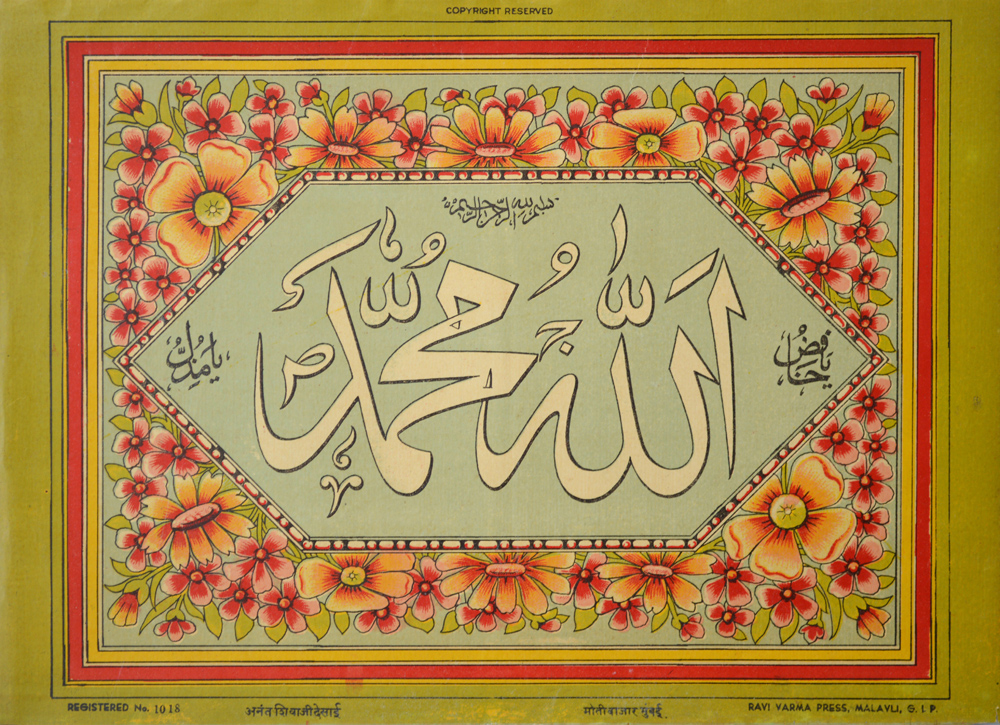 COPYRIGHT RESERVED
بسم الله الرحمن الرحيم
الله محمد
يا خافض
يا مذل
REGISTERED No. 1018 अनंत शिवाजी देसाई मोतीबाजार मुंबई. RAVI VARMA PRESS, MALAVLI, G. I P.